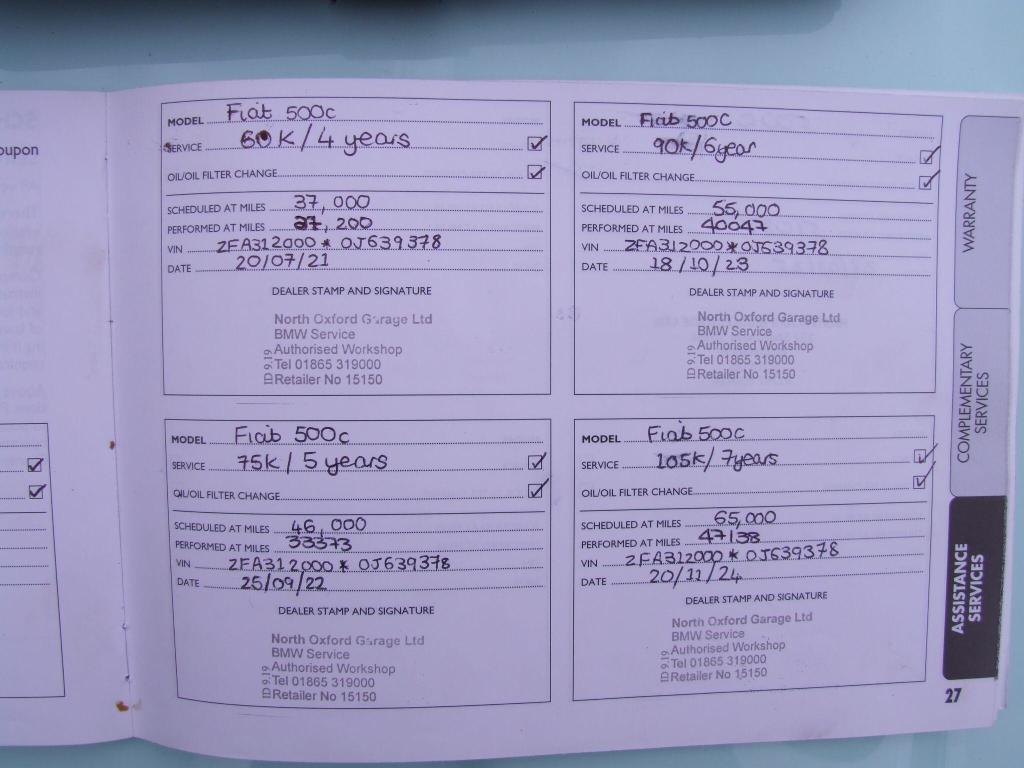 oupon
MODEL Fiat 500c
SERVICE 60K/4 years
OIL/OIL FILTER CHANGE
SCHEDULED AT MILES 37,000
PERFORMED AT MILES 27,200
VIN ZFA312000*0J639378
DATE 20/07/21
DEALER STAMP AND SIGNATURE
North Oxford Garage Ltd
BMW Service
Authorised Workshop
Tel 01865 319000
Retailer No 15150
ID 9.19
MODEL Fiat 500C
SERVICE 90k/6year
OIL/OIL FILTER CHANGE
SCHEDULED AT MILES 55,000
PERFORMED AT MILES 40047
VIN ZFA312000*0J639378
DATE 18/10/23
DEALER STAMP AND SIGNATURE
North Oxford Garage Ltd
BMW Service
Authorised Workshop
Tel 01865 319000
Retailer No 15150
ID 9.19
MODEL Fiat 500c
SERVICE 75k/5 years
OIL/OIL FILTER CHANGE
SCHEDULED AT MILES 46,000
PERFORMED AT MILES 33373
VIN ZFA312000*0J639378
DATE 25/09/22
DEALER STAMP AND SIGNATURE
North Oxford Garage Ltd
BMW Service
Authorised Workshop
Tel 01865 319000
Retailer No 15150
ID 9.19
MODEL Fiat 500C
SERVICE 105k/7years
OIL/OIL FILTER CHANGE
SCHEDULED AT MILES 65,000
PERFORMED AT MILES 47138
VIN ZFA312000*0J639378
DATE 20/11/24
DEALER STAMP AND SIGNATURE
North Oxford Garage Ltd
BMW Service
Authorised Workshop
Tel 01865 319000
Retailer No 15150
ID 9.19
WARRANTY
COMPLEMENTARY
SERVICES
ASSISTANCE
SERVICES
27